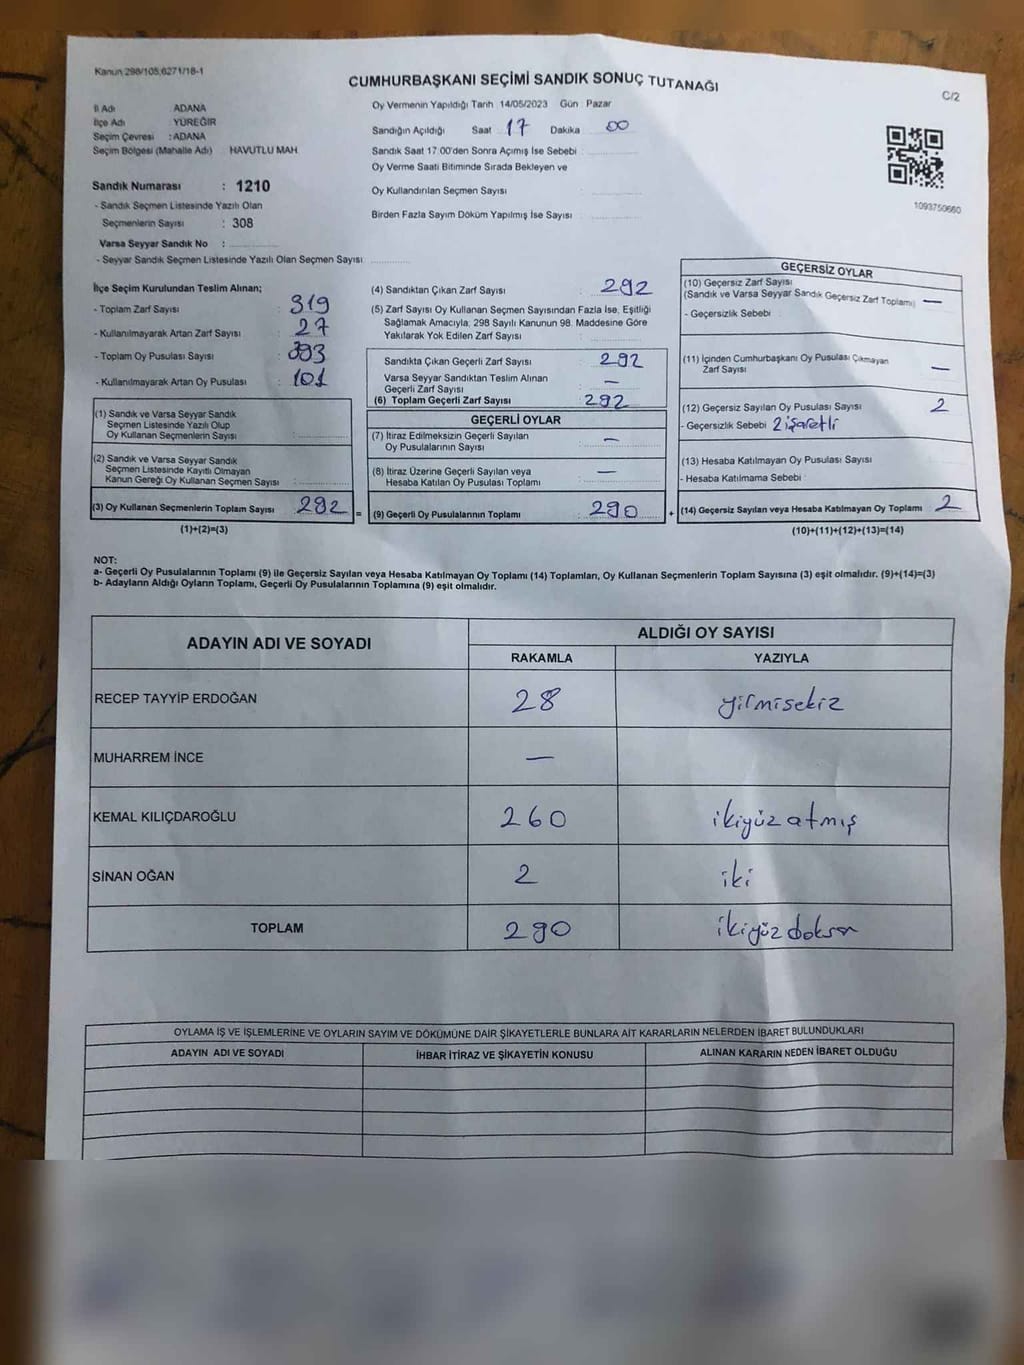 Kanun 298/105,6271/18-1
CUMHURBAŞKANI SEÇİMİ SANDIK SONUÇ TUTANAĞI
C/2
İl Adı ADANA
İlçe Adı YÜREĞİR
Seçim Çevresi : ADANA
Seçim Bölgesi (Mahalle Adı) HAVUTLU MAH.
Oy Vermenin Yapıldığı Tarih 14/05/2023 Gün Pazar
Sandığın Açıldığı Saat 17 Dakika 00
Sandık Saat 17:00'den Sonra Açımış İse Sebebi :
Oy Verme Saati Bitiminde Sırada Bekleyen ve
Oy Kullandırılan Seçmen Sayısı :
Birden Fazla Sayım Döküm Yapılmış İse Sayısı :
1093750660
Sandık Numarası : 1210
- Sandık Seçmen Listesinde Yazılı Olan
Seçmenlerin Sayısı : 308
Varsa Seyyar Sandık No :
- Seyyar Sandık Seçmen Listesinde Yazılı Olan Seçmen Sayısı
İlçe Seçim Kurulundan Teslim Alınan;
- Toplam Zarf Sayısı : 319
- Kullanılmayarak Artan Zarf Sayısı : 27
- Toplam Oy Pusulası Sayısı : 393
- Kullanılmayarak Artan Oy Pusulası : 101
(1) Sandık ve Varsa Seyyar Sandık
Seçmen Listesinde Yazılı Olup
Oy Kullanan Seçmenlerin Sayısı :
(2) Sandık ve Varsa Seyyar Sandık
Seçmen Listesinde Kayıtlı Olmayan
Kanun Gereği Oy Kullanan Seçmen Sayısı :
(3) Oy Kullanan Seçmenlerin Toplam Sayısı : 292 =
(1)+(2)=(3)
(4) Sandıktan Çıkan Zarf Sayısı : 292
(5) Zarf Sayısı Oy Kullanan Seçmen Sayısından Fazla İse, Eşitliği
Sağlamak Amacıyla; 298 Sayılı Kanunun 98. Maddesine Göre
Yakılarak Yok Edilen Zarf Sayısı :
Sandıkta Çıkan Geçerli Zarf Sayısı : 292
Varsa Seyyar Sandıktan Teslim Alınan
Geçerli Zarf Sayısı : —
(6) Toplam Geçerli Zarf Sayısı : 292
GEÇERLİ OYLAR
(7) İtiraz Edilmeksizin Geçerli Sayılan
Oy Pusulalarının Sayısı : —
(8) İtiraz Üzerine Geçerli Sayılan veya
Hesaba Katılan Oy Pusulası Toplamı : —
(9) Geçerli Oy Pusulalarının Toplamı : 290 +
GEÇERSİZ OYLAR
(10) Geçersiz Zarf Sayısı
(Sandık ve Varsa Seyyar Sandık Geçersiz Zarf Toplamı) —
- Geçersizlik Sebebi :
(11) İçinden Cumhurbaşkanı Oy Pusulası Çıkmayan
Zarf Sayısı —
(12) Geçersiz Sayılan Oy Pusulası Sayısı 2
- Geçersizlik Sebebi 2 işaretli
(13) Hesaba Katılmayan Oy Pusulası Sayısı
- Hesaba Katılmama Sebebi :
(14) Geçersiz Sayılan veya Hesaba Katılmayan Oy Toplamı 2
(10)+(11)+(12)+(13)=(14)
NOT:
a- Geçerli Oy Pusulalarının Toplamı (9) ile Geçersiz Sayılan veya Hesaba Katılmayan Oy Toplamı (14) Toplamları, Oy Kullanan Seçmenlerin Toplam Sayısına (3) eşit olmalıdır. (9)+(14)=(3)
b- Adayların Aldığı Oyların Toplamı, Geçerli Oy Pusulalarının Toplamına (9) eşit olmalıdır.
ADAYIN ADI VE SOYADI ALDIĞI OY SAYISI
RAKAMLA YAZIYLA
RECEP TAYYİP ERDOĞAN 28 yirmisekiz
MUHARREM İNCE —
KEMAL KILIÇDAROĞLU 260 ikiyüz atmış
SİNAN OĞAN 2 iki
TOPLAM 290 ikiyüz doksan
OYLAMA İŞ VE İŞLEMLERİNE VE OYLARIN SAYIM VE DÖKÜMÜNE DAİR ŞİKAYETLERLE BUNLARA AİT KARARLARIN NELERDEN İBARET BULUNDUKLARI
ADAYIN ADI VE SOYADI İHBAR İTİRAZ VE ŞİKAYETİN KONUSU ALINAN KARARIN NEDEN İBARET OLDUĞU